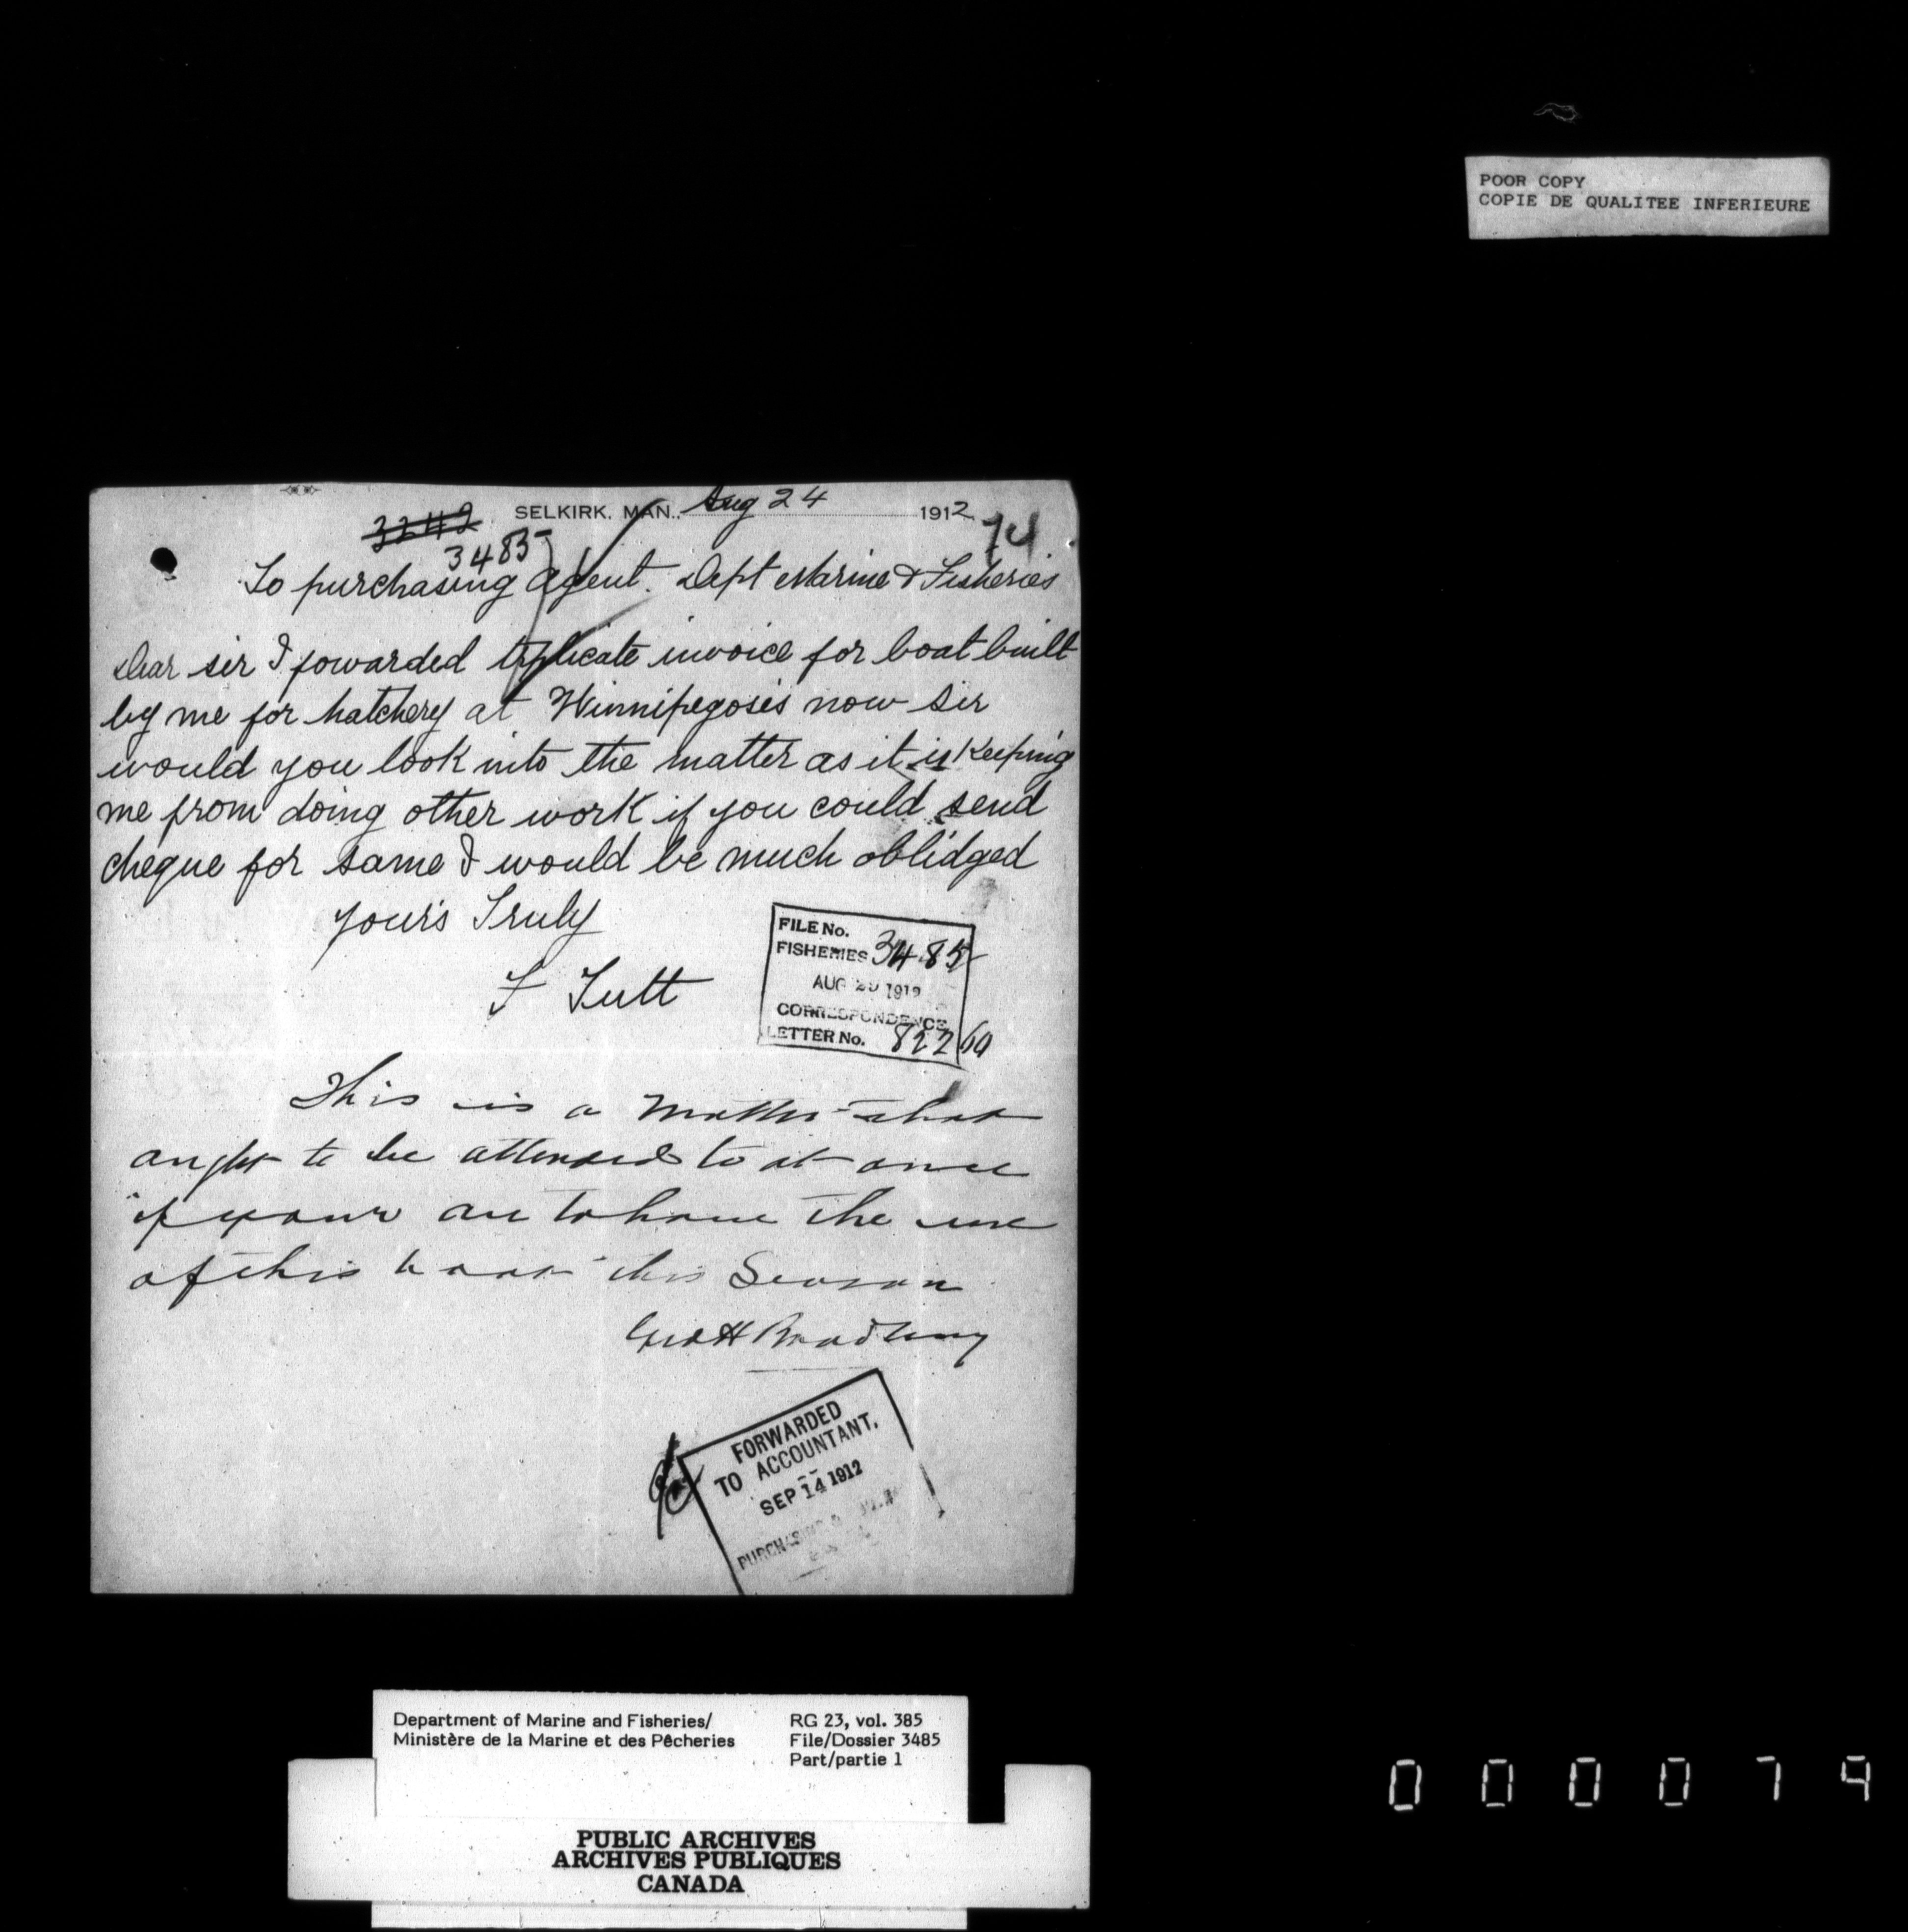 POOR COPY
COPIE DE QUALITEE INFERIEURE
SELKIRK, MAN., Aug 24 1912
3242
74
3485
To purchasing agent. Dept Marine & Fisheries
Dear sir I fowarded triplicate invoice for boat built
by me for hatchery at Winnipegosis now sir
would you look into the matter as it is keeping
me from doing other work if you could send
cheque for same I would be much oblidged
your's Truly
F Tutt
FILE No.
FISHERIES 3485
AUG 1912
CORRESPONDENCE
LETTER No. 82260
This is a matter that
aught to be attended to at once
if your are to have the use
of this boat this Season
Geo H Bradbury
FORWARDED
TO ACCOUNTANT.
SEP 14 1912
PURCHASING
Department of Marine and Fisheries/
Ministère de la Marine et des Pêcheries
RG 23, vol. 385
File/Dossier 3485
Part/partie 1
PUBLIC ARCHIVES
ARCHIVES PUBLIQUES
CANADA
000074